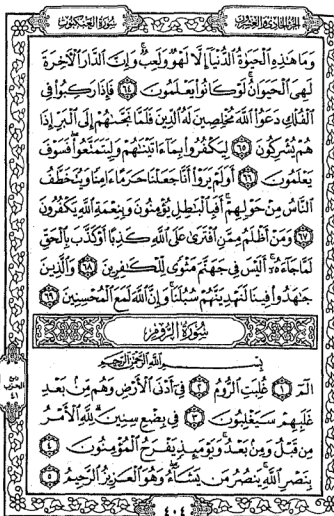 الجزء الحادي والعشرون سورة العنكبوت
وَمَا هَٰذِهِ ٱلْحَيَوٰةُ ٱلدُّنْيَآ إِلَّا لَهْوٌ وَلَعِبٌ ۚ وَإِنَّ ٱلدَّارَ ٱلْـَٔاخِرَةَ
لَهِىَ ٱلْحَيَوَانُ ۚ لَوْ كَانُوا۟ يَعْلَمُونَ ٦٤ فَإِذَا رَكِبُوا۟ فِى
ٱلْفُلْكِ دَعَوُا۟ ٱللَّهَ مُخْلِصِينَ لَهُ ٱلدِّينَ فَلَمَّا نَجَّىٰهُمْ إِلَى ٱلْبَرِّ إِذَا
هُمْ يُشْرِكُونَ ٦٥ لِيَكْفُرُوا۟ بِمَآ ءَاتَيْنَٰهُمْ وَلِيَتَمَتَّعُوا۟ ۖ فَسَوْفَ
يَعْلَمُونَ ٦٦ أَوَلَمْ يَرَوْا۟ أَنَّا جَعَلْنَا حَرَمًا ءَامِنًا وَيُتَخَطَّفُ
ٱلنَّاسُ مِنْ حَوْلِهِمْ ۚ أَفَبِٱلْبَٰطِلِ يُؤْمِنُونَ وَبِنِعْمَةِ ٱللَّهِ يَكْفُرُونَ
٦٧ وَمَنْ أَظْلَمُ مِمَّنِ ٱفْتَرَىٰ عَلَى ٱللَّهِ كَذِبًا أَوْ كَذَّبَ بِٱلْحَقِّ
لَمَّا جَآءَهُۥٓ ۚ أَلَيْسَ فِى جَهَنَّمَ مَثْوًى لِّلْكَٰفِرِينَ ٦٨ وَٱلَّذِينَ
جَٰهَدُوا۟ فِينَا لَنَهْدِيَنَّهُمْ سُبُلَنَا ۚ وَإِنَّ ٱللَّهَ لَمَعَ ٱلْمُحْسِنِينَ ٦٩
سورة الروم
بِسْمِ ٱللَّهِ ٱلرَّحْمَٰنِ ٱلرَّحِيمِ
الٓمٓ ١ غُلِبَتِ ٱلرُّومُ ٢ فِىٓ أَدْنَى ٱلْأَرْضِ وَهُم مِّنۢ بَعْدِ
غَلَبِهِمْ سَيَغْلِبُونَ ٣ فِى بِضْعِ سِنِينَ ۗ لِلَّهِ ٱلْأَمْرُ
مِن قَبْلُ وَمِنۢ بَعْدُ ۚ وَيَوْمَئِذٍ يَفْرَحُ ٱلْمُؤْمِنُونَ ٤
بِنَصْرِ ٱللَّهِ ۚ يَنصُرُ مَن يَشَآءُ ۖ وَهُوَ ٱلْعَزِيزُ ٱلرَّحِيمُ ٥
٤٠٤